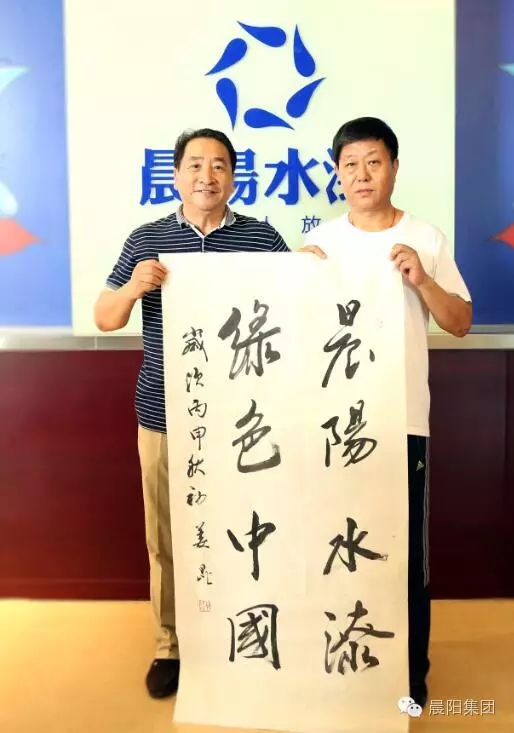 晨陽水漆
人 放
晨陽水漆
綠色中國
歲次丙申秋初 姜昆
晨阳集团